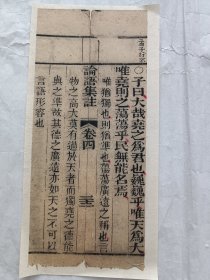 ○子曰大哉堯之爲君也巍巍乎唯天爲大
唯堯則之蕩蕩乎民無能名焉
唯猶獨也則猶準也蕩蕩廣遠之稱也言
論語集註 卷四
物之高大莫有過於天者而獨堯之德能
與之準故其德之廣遠亦如天之不可以
言語形容也